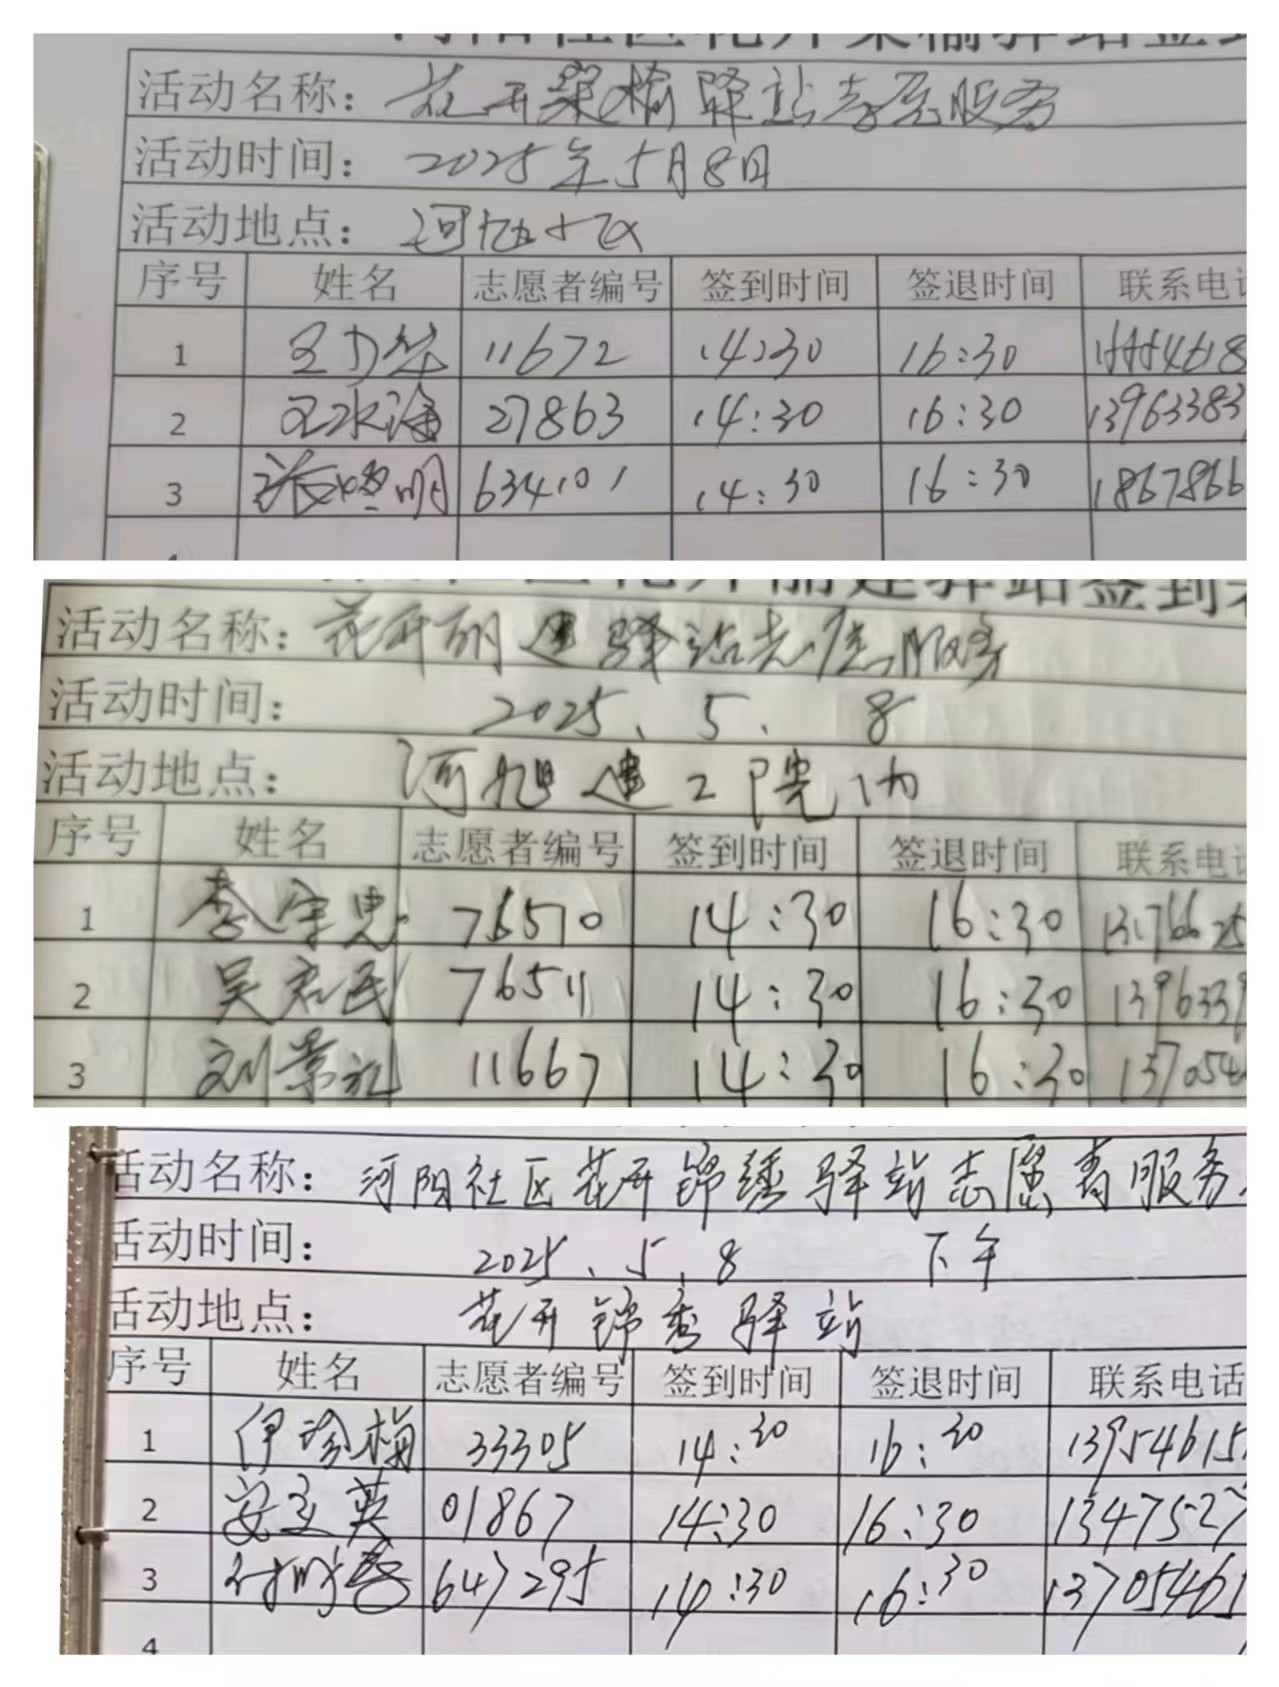 河阳社区花开桑榆驿站签到
活动名称：花开桑榆驿站志愿服务
活动时间：2025年5月8日
活动地点：河阳小区
序号 姓名 志愿者编号 签到时间 签退时间 联系电话
1 11672 14:30 16:30
2 王永海 27863 14:30 16:30 13963383
3 634101 14:30 16:30 1867866
花开丽建驿站签到表
活动名称：花开丽建驿站志愿服务
活动时间：2025、5、8
活动地点：河旭建工院内
序号 姓名 志愿者编号 签到时间 签退时间 联系电话
1 李宗思 76570 14:30 16:30 1376625
2 吴君民 76511 14:30 16:30 1396339
3 刘景礼 11667 14:30 16:30 137054
活动名称：河阳社区花开锦绣驿站志愿者服务
活动时间：2025、5、8 下午
活动地点：花开锦秀驿站
序号 姓名 志愿者编号 签到时间 签退时间 联系电话
1 伊珍梅 33305 14:30 16:30 13954615
2 安玉英 01867 14:30 16:30 1347527
3 647295 14:30 16:30 13705461
4